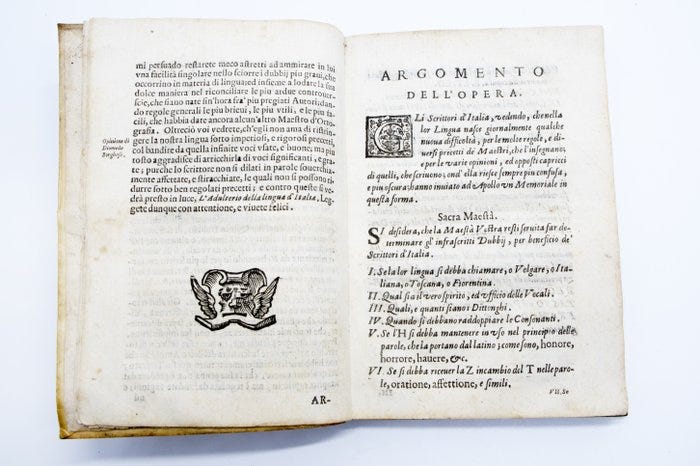 mi persuado restarete meco astretti ad ammirare in lui
vna facilità singolare nello sciorre i dubbij piu graui, che
occorrino in materia di lingua: ed insieme a lodare la sua
dolce maniera nel riconciliare le piu ardue controuer-
sie, che siano nate sin'hora fra' piu pregiati Autori; dan-
do regole generali le piu brieui, le piu vtili, e le piu fa-
cili, che habbia date ancora alcun'altro Maestro d'Orto-
grafia. Oltreciò voi vedrete, ch'egli non ama di restrin-
gere la nostra lingua sotto imperiosi, e rigorosi precetti,
col bandire da quella infinite voci vsate, e buone; ma piu
tosto aggradisce di arricchirla di voci significanti, e gra-
te; purche lo scrittore non si dilati in parole souerchia-
mente affettate, e stiracchiate, le quali non si possono ri-
durre sotto ben regolati precetti; e contro queste si ve-
drà presto in luce, L'Adulterio della lingua d'Italia. Leg-
gete dunque con attentione, e viuete felici.
Opinione di
Borghesi.
AR-
ARGOMENTO
DELL'OPERA.
GLi Scrittori d'Italia, vedendo, che nella
lor Lingua nasce giornalmente qualche
nuoua difficoltà, per le molte regole, e di-
uersi precetti de' Maestri, che l'insegnano,
e per le varie opinioni, ed opposti capricci
di quelli, che scriuono; ond'ella riesce sempre piu confusa,
e piu oscura: hanno inuiato ad Apollo vn Memoriale in
questa forma.
Sacra Maestà.
SI desidera, che la Maestà Vostra resti seruita far de-
terminare gl'infrascritti Dubbij, per beneficio de'
Scrittori d'Italia.
I. Se la lor lingua si debba chiamare, o Volgare, o Ita-
liana, o Toscana, o Fiorentina.
II. Qual sia il vero spirito, ed vfficio delle Vocali.
III. Quali, e quanti siano i Dittonghi.
IV. Quando si debbano raddoppiare le Consonanti.
V. Se l'H si debba mantenere in vso nel principio delle
parole, che la portano dal latino; come sono, honore,
horrore, hauere, &c.
VI. Se si debba riceuer la Z in cambio del T nelle paro-
le, oratione, affettione, e simili.
VII. Se